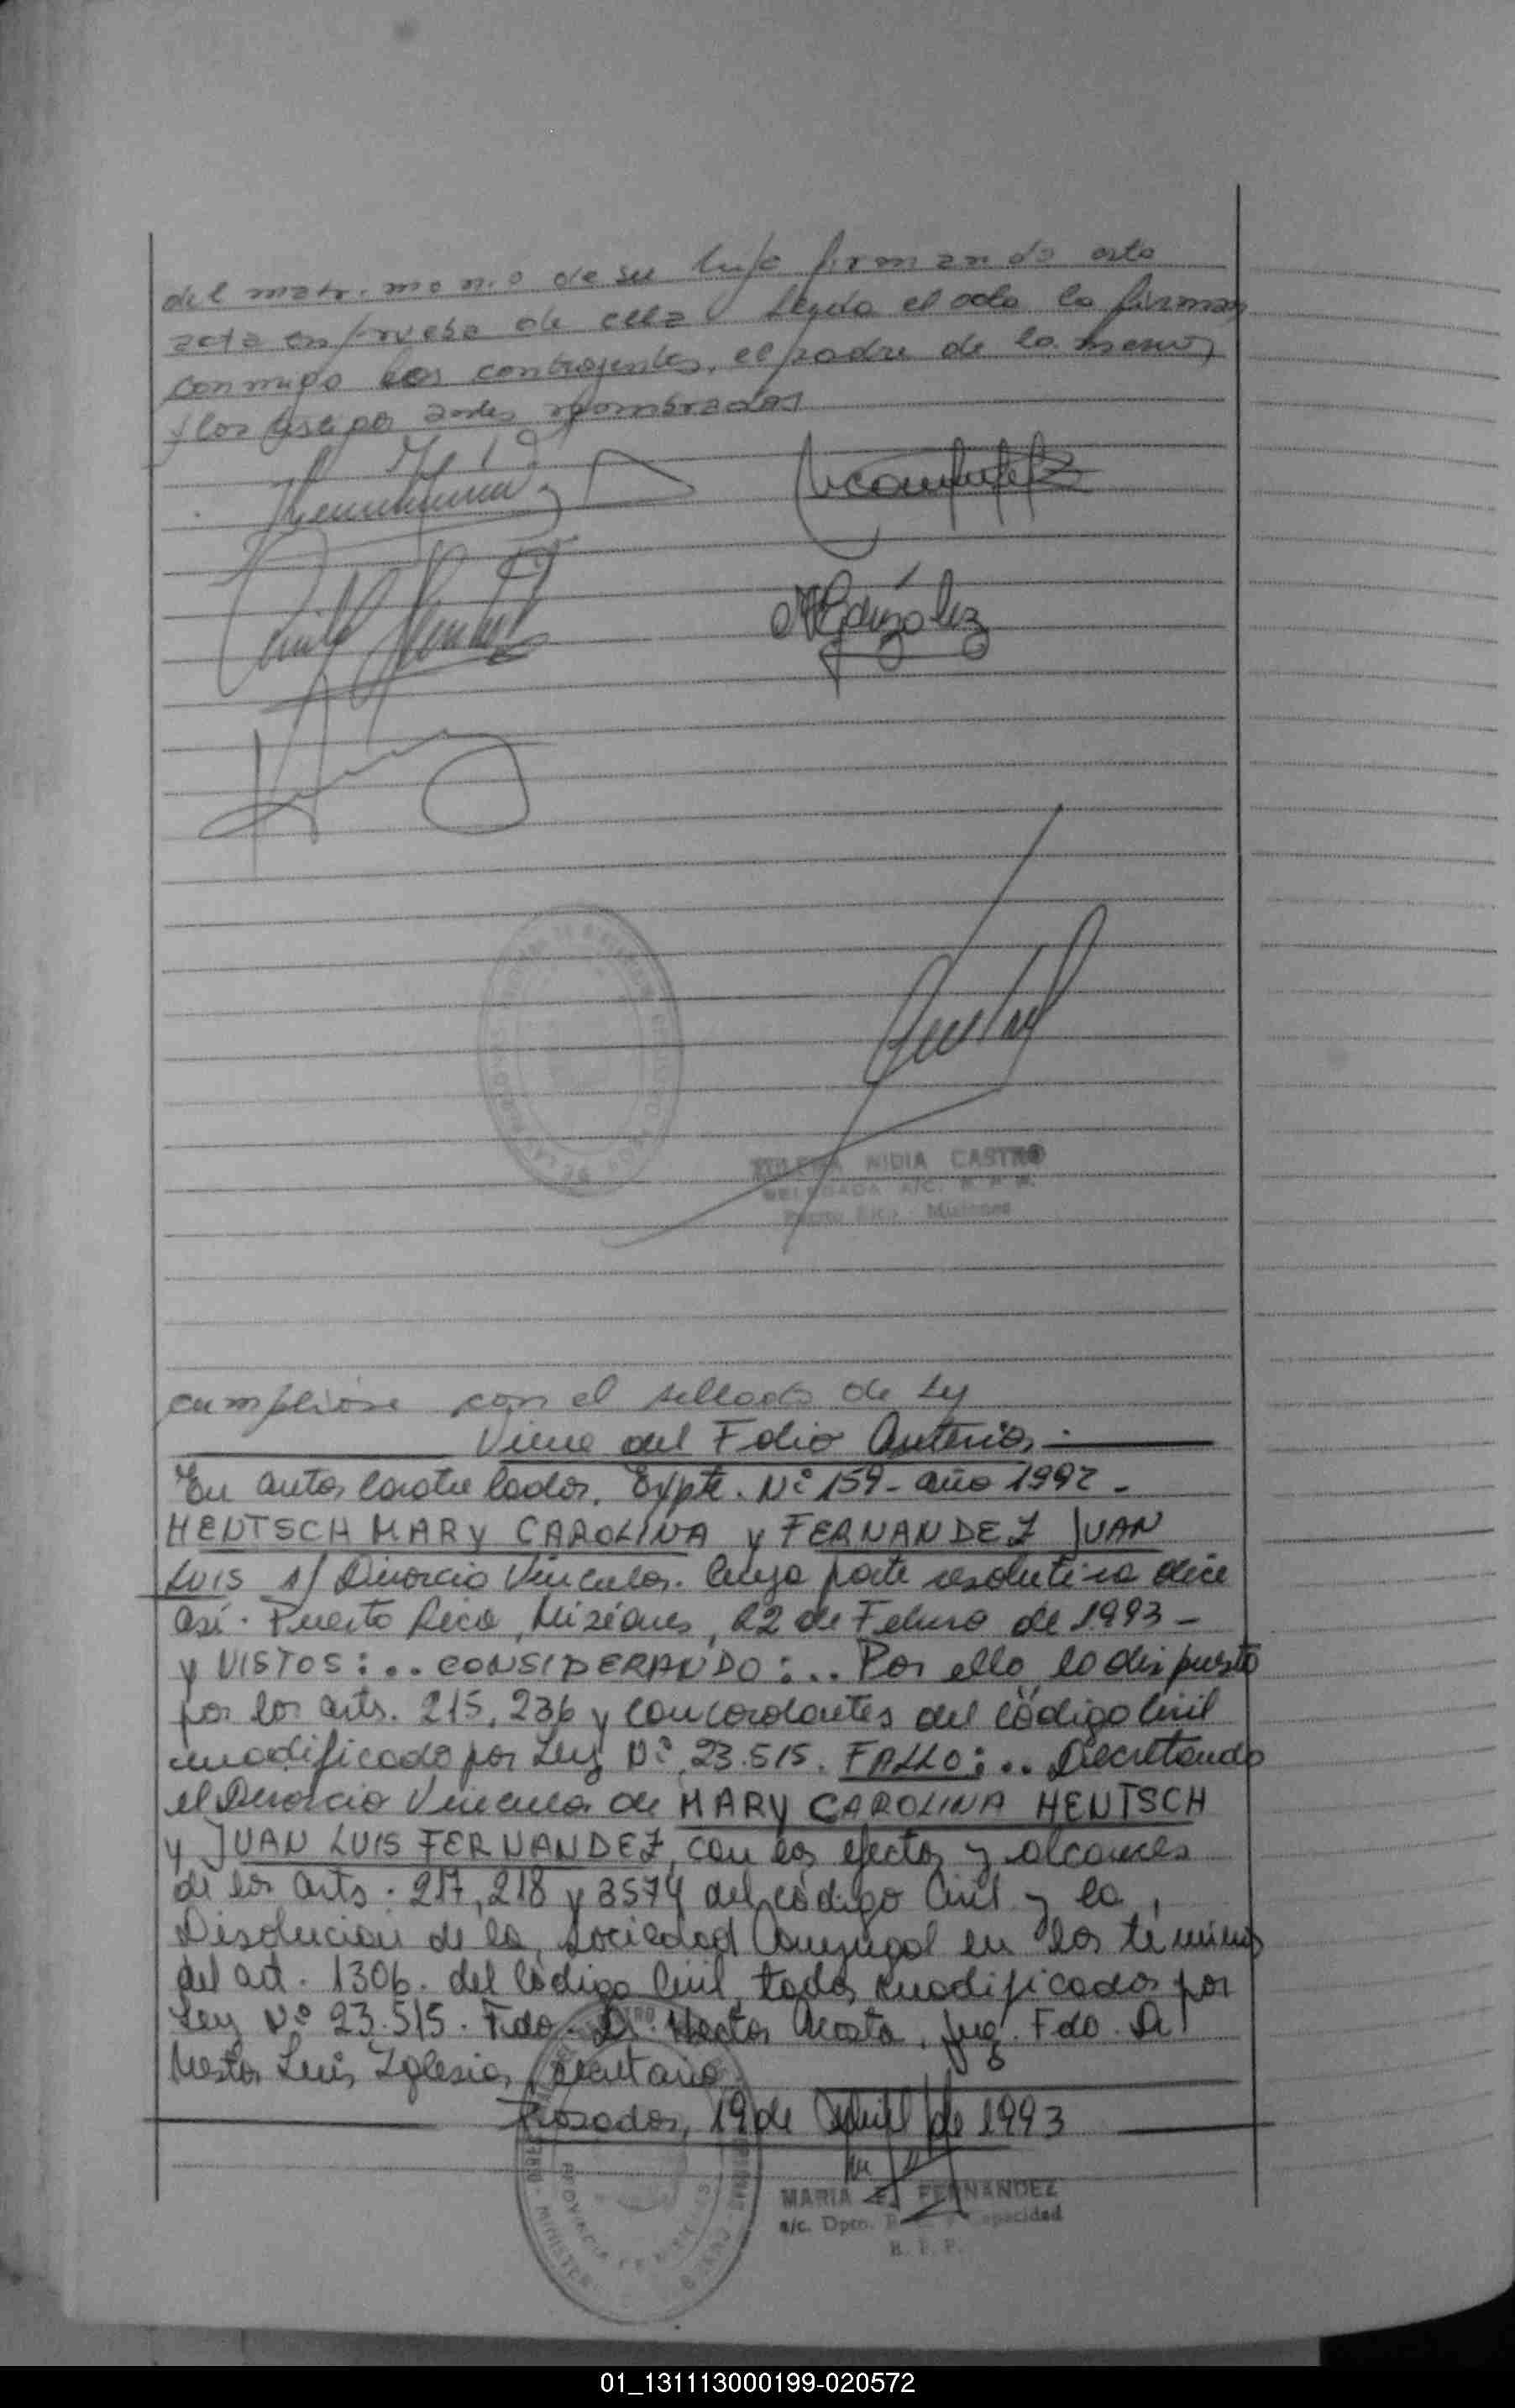 del matrimonio de su hija firmando esta
acta en prueba de ella Leyda el acta la firman
conmigo los contrayentes, el padre de la menor
y los testigos antes nombrados
MGonzález
NIDIA CASTRO
DELEGADA A/C. R. P. P.
Puerto Rico - Misiones
cumplióse con el sellado de Ley
Viene del Folio Anterior.-
En autos caratulados, Expte. Nº 159- año 1992 -
HENTSCH MARY CAROLINA y FERNANDEZ JUAN
LUIS s/ Divorcio Vincular. Cuya parte resolutiva dice
así. Puerto Rico, Misiones, 22 de Febrero de 1993 -
y VISTOS:.. CONSIDERANDO:.. Por ello, lo dispuesto
por los arts. 215, 236 y concordantes del Código Civil
modificado por Ley Nº 23.515. FALLO:.. Decretando
el Divorcio Vincular de MARY CAROLINA HENTSCH
y JUAN LUIS FERNANDEZ, con los efectos y alcances
de los arts. 217, 218 y 3574 del código Civil y la
Disolucion de la Sociedad Conyugal en los términos
del art. 1306. del Código Civil, todos modificados por
Ley Nº 23.515. Fdo. Dr. Hector Acosta, Juez. Fdo. Dr
Nestor Luis Iglesias, Secretario.
Posadas, 19 de Abril de 1993
MARIA E. FERNANDEZ
a/c. Dpto. Capacidad
R. P. P.
01_131113000199-020572